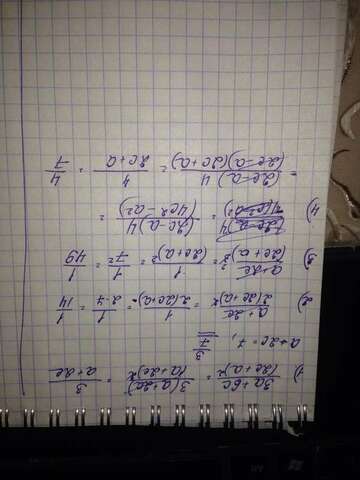 1) (3a+6c)/(2c+a)² = 3(a+2c)/(a+2c)² = 3/(a+2c)
a+2c=7, 3/7
2) (a+2c)/(2(2c+a)²) = 1/(2(2c+a)) = 1/(2·7) = 1/14
3) (a+2c)/(2c+a)³ = 1/(2c+a)² = 1/7² = 1/49
4) = (2c-a)4/(4c²-a²) =
= (2c-a)4/((2c-a)(2c+a)) = 4/(2c+a) = 4/7